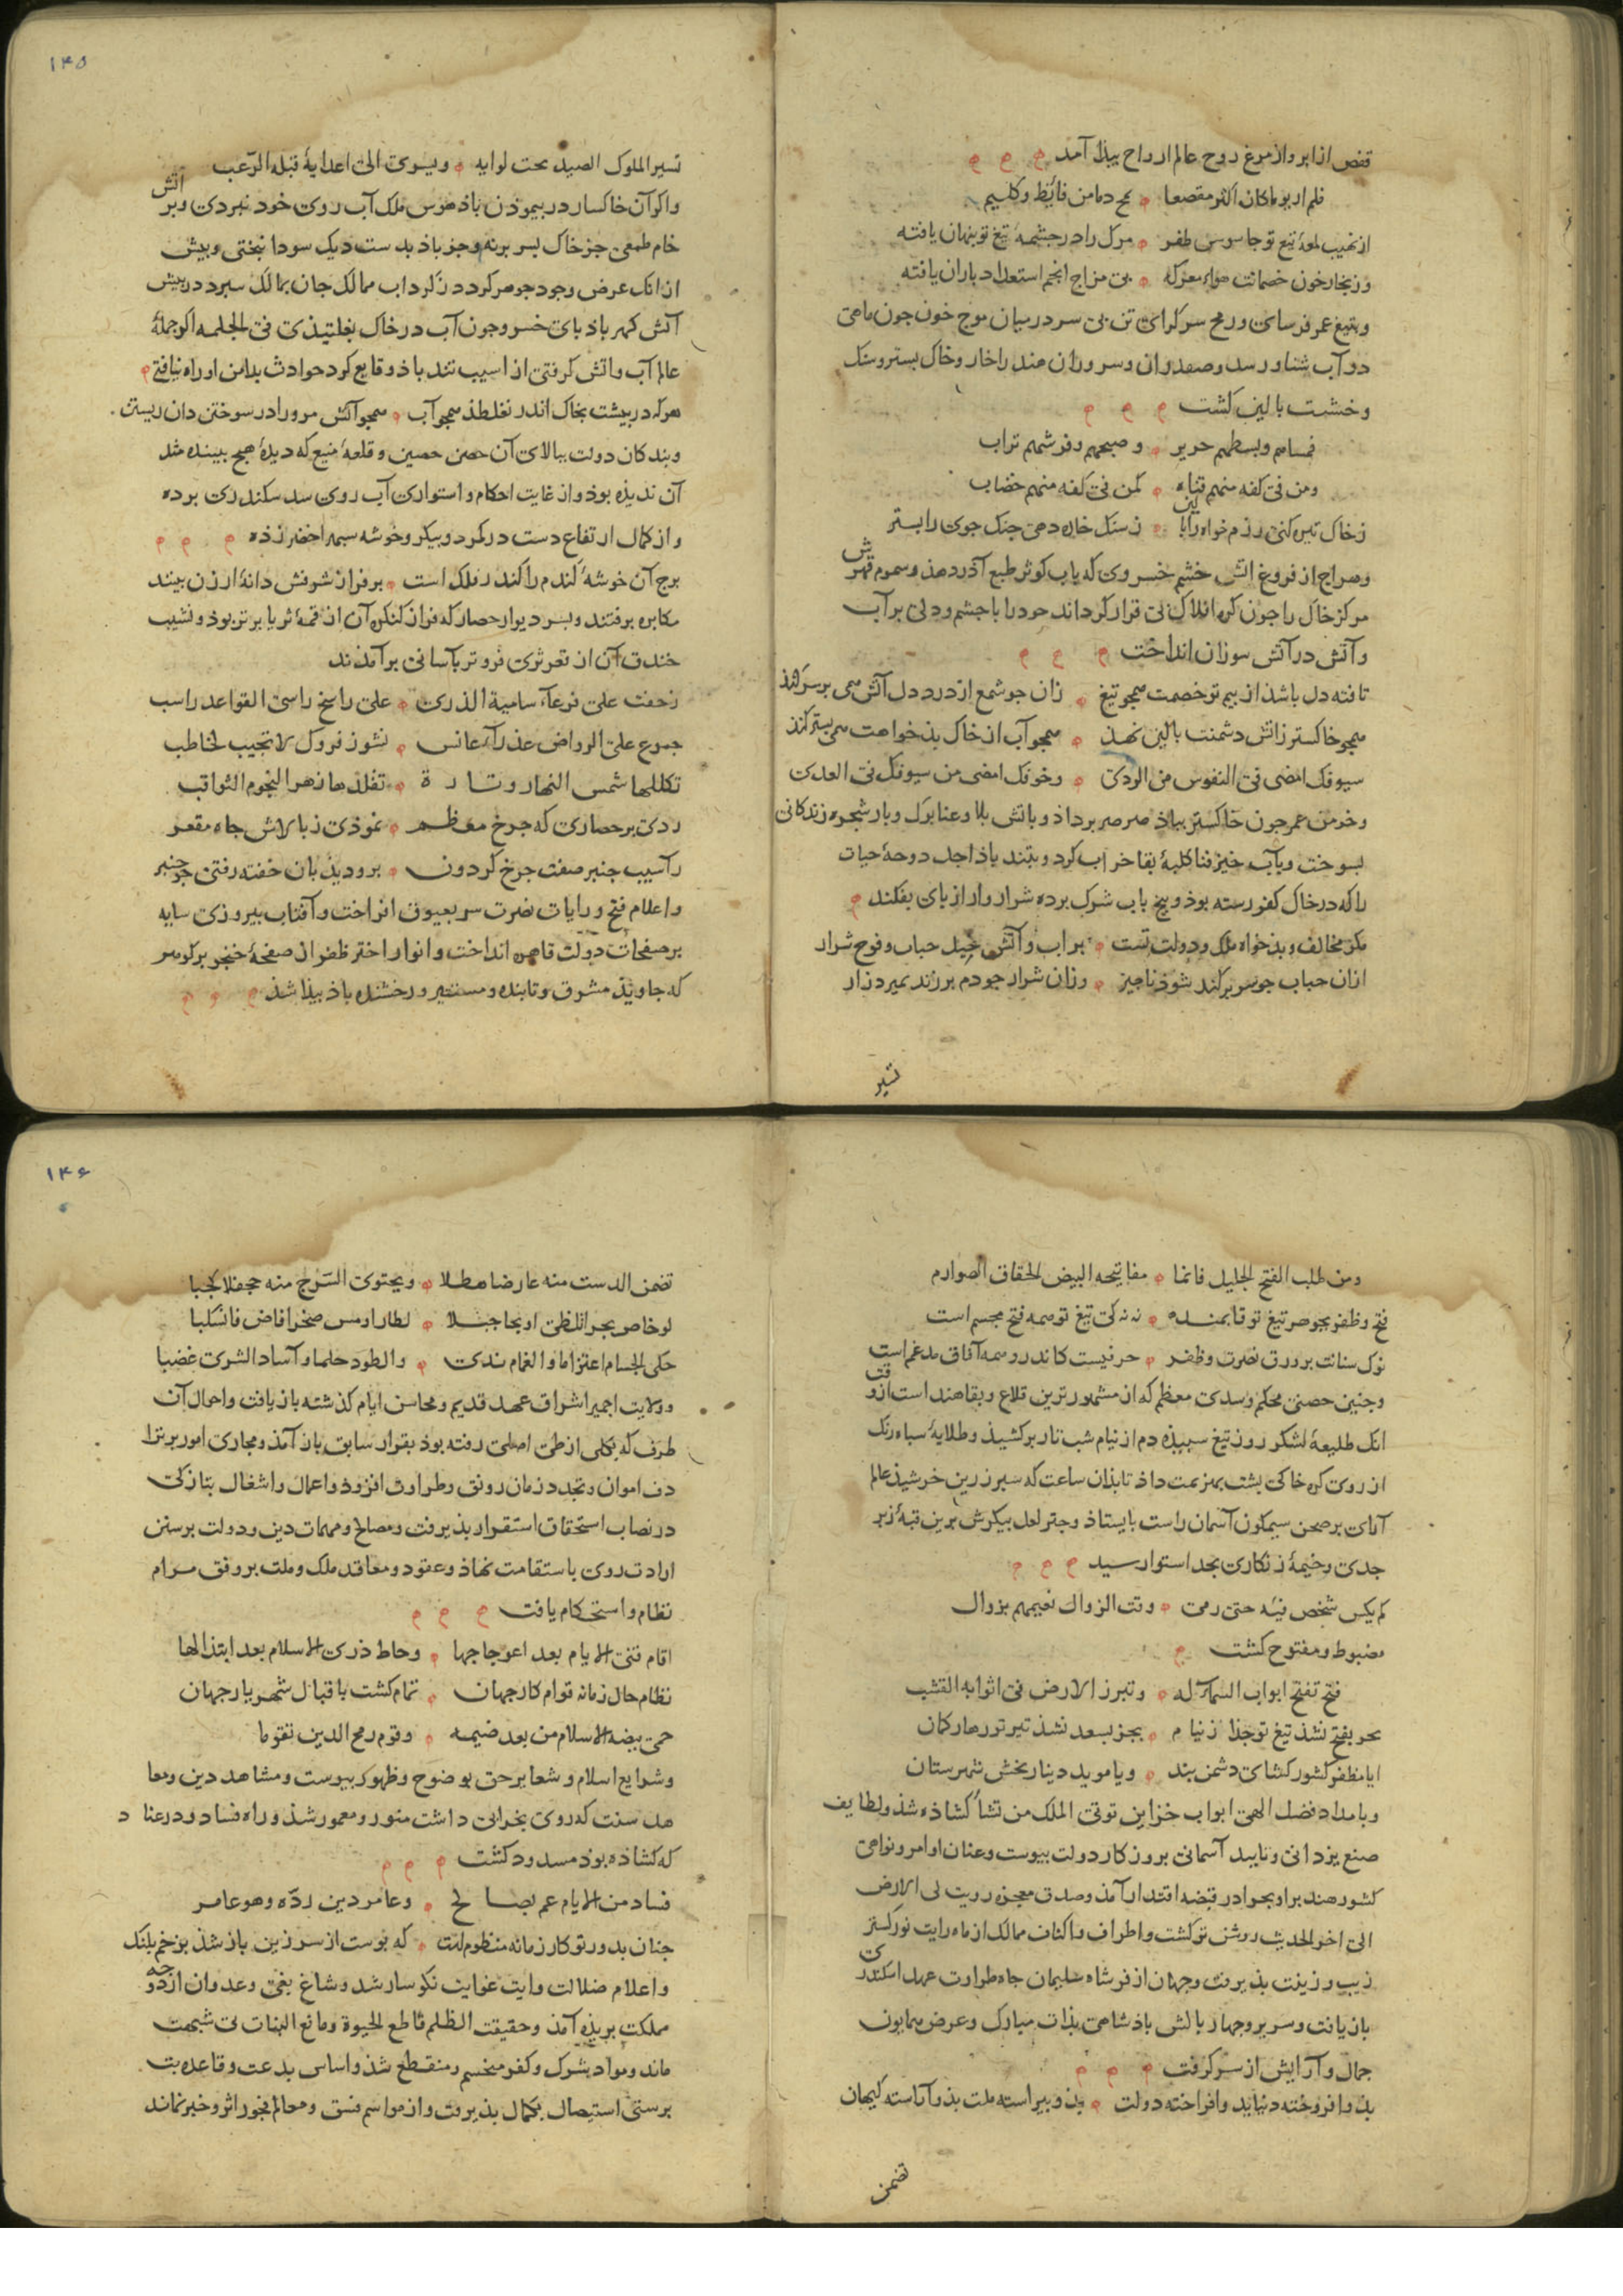 قفص ازابرواز مرغ روح عالم ارواح بیذا آمد
فلم ار یوماکان اکثر مقصعا بح دما من فائظ وکلیم
از نهیب لمعهٔ تیغ تو جاسوس ظفر مرک را در جشمهٔ تیغ تو بنهان یافته
وز بخار خون خصمانت هواء معرکه بی مزاج انجم استعداد باران یافته
وبتیغ عمر فرسای ورمح سرکرای تن بی سر در میان موج خون جون ماهی
در آب شناور سد وصفدران وسروران هند را خار وخاک بستر وسنک
وخشت بالین کشت
فمساهم وبسطهم حریر وصبحهم وفرشهم تراب
ومن فی کفه منهم قناه کمن فی کفه منهم خضاب
زخاک تیره کنی رزم خواه را بالین زسنک خاره دهی جنک جوی را بستر
وهراج از فروغ اتش خشم خسروی که یاب کوثر طبع آذر دهذ وسموم قهرش
مرکز خاک را جون کره افلاک بی قرار کرداند خود را با جشم ودلی بر آب
وآتش در آتش سوزان انداخت
تافته دل باشذ از بیم تو خصمت همجو تیغ زان جو شمع از درد دل آتش همی بر سر کنذ
همجو خاکستر زاتش دشمنت بالین نهذ همجو آب از خاک بذخواهت همی بستر کنذ
سیوفک امضی فی النفوس من الردی وخوفک امضی من سیوفک فی العدی
وخرمن عمر جون خاکستر بباذ صرصر برداذ وباتش بلا وعنا برک وبار شجره زندکانی
بسوخت وبآب خنجر فنا کلبهٔ بقا خراب کرد وبتند باذ اجل دوحهٔ حیات
را که در خاک کفر رسته بوذ وبیخ باب شرک برده شرار وار از بای بفکند
مکر مخالف وبذخواه ملک ودولت تست براب وآتش خیل حباب وفوج شرار
ازان حباب جو سر برکند شوذ ناجیز وزان شرار جو دم برزند بمیرد زار
تسیر
۱۴۵
تسیر الملوک الصید تحت لوایه ویسری الی اعدایهٔ قبله الرعب
واکر آن خاکسار در بیموذن باذ هوس ملک آب روی خود نبردی وبر اتش
خام طمعی جز خاک بسر برنه وجز باذ بدست دیک سودا نبختی وبیش
ازانک عرض وجود جوهر کردد زکرداب ممالک جان بمالک سبرد در بیش
آتش کهر باذ بای خسرو جون آب در خاک بغلتیذی فی الجلمه اکر جملهٔ
عالم آب واتش کرفتی از اسیب تند باذ وقایع کرد حوادث بدامن او راه نیافتی
هرکه در بیشت بخاک اندر نغلطذ همجو آب همجو آتش مرورا در سوختن دان ریستن
وبندکان دولت ببالای آن حصن حصین وقلعهٔ منیع که دیدهٔ هیج بیننده مثل
آن ندیذه بوذ واز غایت احکام واستواری آب روی سد سکندری برده
واز کمال ارتفاع دست در کمر دوبیکر وخوشه سبهر اخضر زذه
برج آن خوشهٔ کندم را کند در فلک است بر فراز شرفش دانهٔ ارزن بیند
مکابره برفتند وبسر دیوار حصار که فراز کنکره آن از قمهٔ ثریا برتر بوذ ونشیب
خندق آن از قعر ثری فروتر بآسانی برآمذند
زحفت علی فرعاء سامیة الذری علی راسخ راسی القواعد راسب
جموع علی الرواض عذراء عانس نشوز فروک لا تجیب لخاطب
تکللها شمس النهار وتارة تقلدها زهر النجوم الثواقب
ردی بر حصاری که جرخ معظم نموذی زبالاش جاه مقعر
راسیب جنبر صفت جرخ کردون برو دیذبان خفته رفتی جو جنبر
واعلام فتح ورایات نصرت سر بعیوق افراخت وآفتاب بیروزی سایه
بر صفحات دولت قاهره انداخت وانوار اختر ظفر از صفحهٔ خنجر برکوهر
که جاویذ مشرق وتابنده ومستنیر ورخشنده باذ بیذا شذ
ومن طلب الفتح الجلیل فانما مفاتیحه البیض الخفاف الصوارم
فتح وظفر بجوهر تیغ تو قایمند نه نه کی تیغ تو همه فتح مجسم است
نوک سنانت بر ورق نصرت وظفر حرفیست کاندرو همه آفاق مدغم است
وجنین حصنی محکم وسدی معظم که از مشهورترین قلاع وبقاهند است ازوقت
انک طلیعهٔ لشکر روز تیغ سبیذه دم از نیام شب تار برکشیذ وطلایهٔ سیاه رنک
از روی کره خاکی بشت بهزیمت داذ تابذان ساعت که سبر زرین خرشیذ عالم
آرای بر صحن سیمکون آسمان راست بایستاذ وجتر لعل بیکرش برین قبهٔ زبر
جدی وخیمهٔ زنکاری بحد استوا رسید
لم یکس شخص فیئه حتی رمی وقت الزوال نعیمهم بزوال
مضبوط ومفتوح کشت
فتح تفتح ابواب السماء له وتبرز الارض فی اثوابه القشب
بجز بفتح نشذ تیغ تو جذا زنیام بجز بسعد نشذ تیر تو رها زکمان
ایا مظفر کشور کشای دشمن بند ویا موید دینار بخش شهرستان
وبامداد فضل الهی ابواب خزاین توتی الملک من تشا کشاذه شذ ولطایف
صنع یزدانی وتایید آسمانی بروزکار دولت بیوست وعنان اوامر ونواهی
کشور هند برا وبحرا در قبضه اقتدار آمذ وصدق معجزه زویت لی الارض
الی اخر الحدیث روشن تر کشت واطراف واکناف ممالک از ماه رایت نور کستر
زیب وزینت بذیرفت وجهان از فر شاه سلیمان جاه طراوت عهد اسکندری
بازیافت وسریر وجهار بالش باذشاهی بذات مبارک وعرض همایون
جمال وآرایش از سر کرفت
بذو افروخته دنیا بذو افراخته دولت بذو بیراسته ملت بذو آراسته کیهان
تضمن
۱۴۶
تضمن الدست منه عارضا هطلا ویحتوی السرج منه جحفلا لجبا
لو خاص بحر التلظی او بجا جبلا لطار او مس صخرا فاض فانسکبا
حکی الحسام اعتزاما والغمام ندی والطود حلما وآساد الشری غضبا
وولایت اجمیر اشراق عهد قدیم ومحاسن ایام کذشته بازیافت واحوال آن
طرف که بکلی ازطی اصلی رفته بوذ بقرار سابق باز آمذ ومجاری امور بر ترا
دف اموان وتجدد زمان رونق وطراوت افزوذ واعمال واشغال بتازکی
در نصاب استحقاق استقرار بذیرفت ومصالح ومهمات دین ودولت بر سنن
ارادت روی باستقامت نهاذ وعقود ومعاقد ملک وملت بر وفق مرام
نظام واستحکام یافت
اقام قنی الایام بعد اعوجاجها وحاط ذری الاسلام بعد ابتذالها
نظام حال زمانه قوام کار جهان تمام کشت باقبال شهریار جهان
حمی بیضه الاسلام من بعد ضیمه وقوم رمح الدین تقوما
وشرایع اسلام وشعایر حق بوضوح وظهور بیوست ومشاهد دین ومعا
هد سنت که روی بخرابی داشت منور ومعمور شذ وراه فساد ودر عناد
که کشاذه بوذ مسدود کشت
فساد من الایام عم بصالح وعامر دین رده وهو عامر
جنان بدور تو کار زمانه منظوم است که بوست از سر زین باز شذ بزخم بلنک
واعلام ضلالت ورایت غوایت نکوسار شد وشاخ بغی وعدوان از دوحه
مملکت بریذه آمذ وحقیقت الظلم قاطع الحیوة ومانع النبات بی شبهت
ماند ومواد شرک وکفر منحسم ومنقطع شذ واساس بدعت وقاعده بت
برستی استیصال بکمال بذیرفت واز مواسم فسق ومعالم فجور اثر وخبر نماند